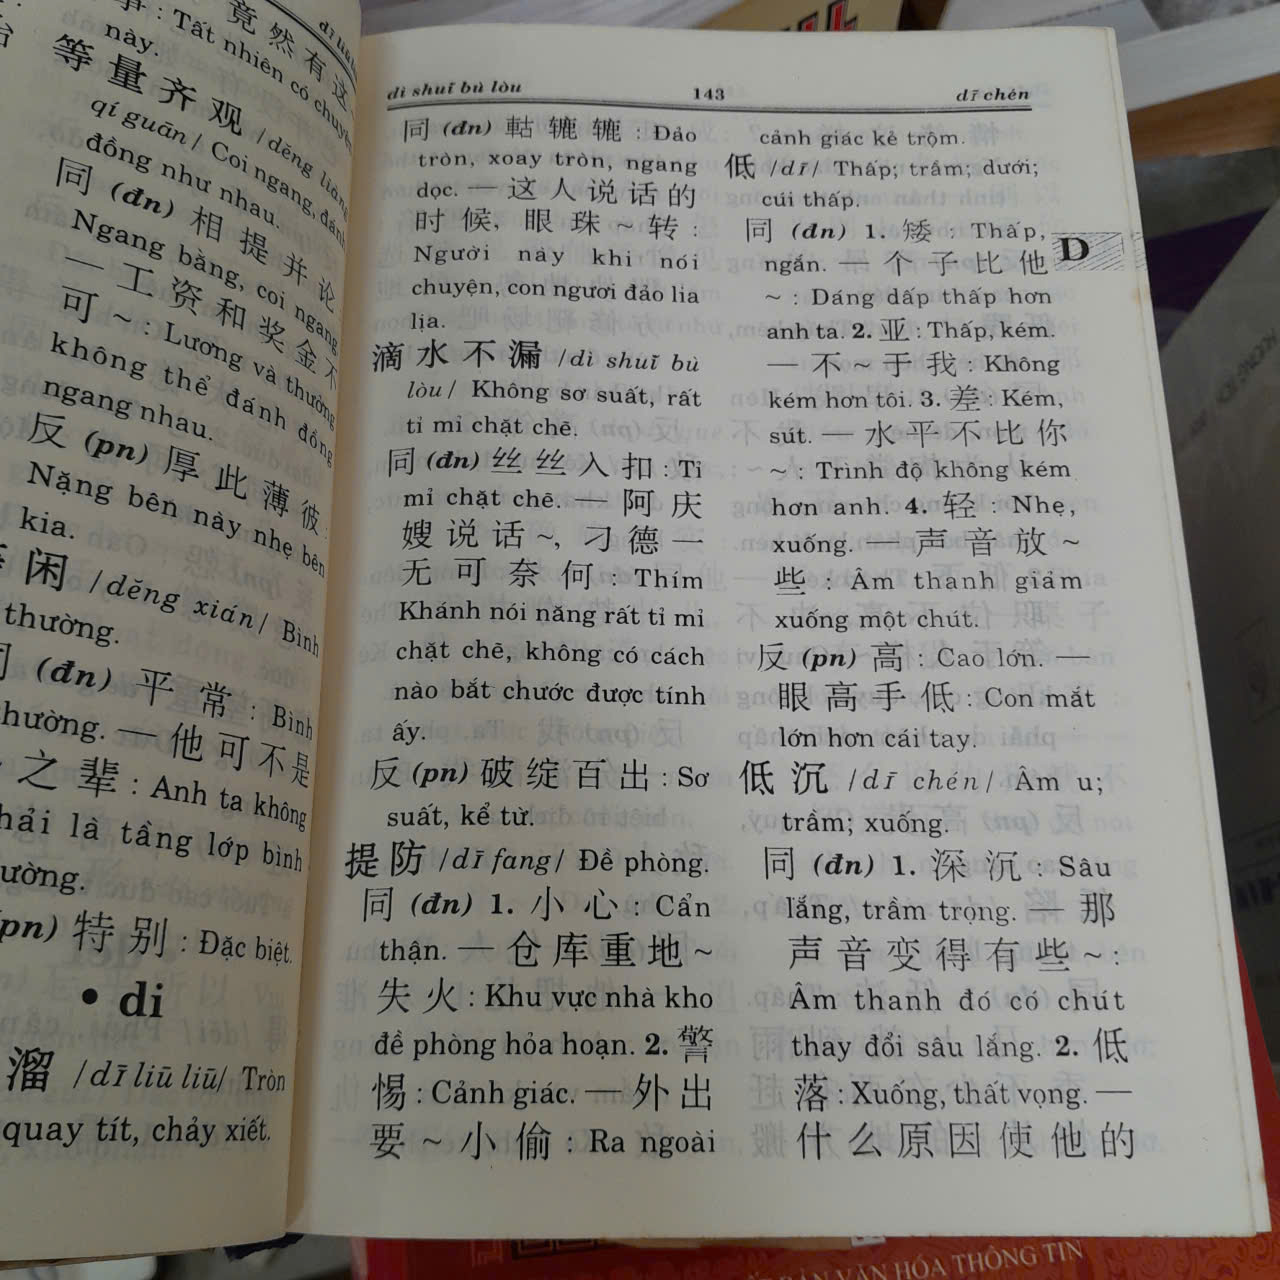 竟然有这
事 : Tất nhiên có chuyện
này.
等量齐观 /děng liàng
qí guān/ Coi ngang, đánh
đồng như nhau.
同 (đn) 相提并论
Ngang bằng, coi ngang
— 工资和奖金不
可 ~ : Lương và thưởng
không thể đánh đồng
ngang nhau.
反 (pn) 厚此薄彼
Nặng bên này nhẹ bên
kia.
闲 /děng xián/ Bình
thường.
同 (đn) 平常 : Bình
thường. — 他可不是
之辈 : Anh ta không
phải là tầng lớp bình
thường.
(pn) 特别 : Đặc biệt.
• di
溜 /dī liū liū/ Tròn
quay tít, chảy xiết.
dì shuǐ bù lòu 143 dī chén
同 (đn) 軲辘辘 : Đảo
tròn, xoay tròn, ngang
dọc. — 这人说话的
时候, 眼珠 ~ 转 :
Người này khi nói
chuyện, con ngươi đảo lia
lịa.
滴水不漏 /dì shuǐ bù
lòu/ Không sơ suất, rất
tỉ mỉ chặt chẽ.
同 (đn) 丝丝入扣 : Tỉ
mỉ chặt chẽ. — 阿庆
嫂说话 ~, 刁德一
无可奈何 : Thím
Khánh nói năng rất tỉ mỉ
chặt chẽ, không có cách
nào bắt chước được tính
ấy.
反 (pn) 破绽百出 : Sơ
suất, kể từ.
提防 /dī fang/ Đề phòng.
同 (đn) 1. 小心 : Cẩn
thận. — 仓库重地 ~
失火 : Khu vực nhà kho
đề phòng hỏa hoạn. 2. 警
惕 : Cảnh giác. — 外出
要 ~ 小偷 : Ra ngoài
cảnh giác kẻ trộm.
低 /dī/ Thấp; trầm; dưới;
cúi thấp.
同 (đn) 1. 矮 : Thấp,
ngắn. — 个子比他
~ : Dáng dấp thấp hơn
anh ta. 2. 亚 : Thấp, kém.
— 不 ~ 于我 : Không
kém hơn tôi. 3. 差 : Kém,
sút. — 水平不比你
~ : Trình độ không kém
hơn anh. 4. 轻 : Nhẹ,
xuống. — 声音放 ~
些 : Âm thanh giảm
xuống một chút.
反 (pn) 高 : Cao lớn. —
眼高手低 : Con mắt
lớn hơn cái tay.
低沉 /dī chén/ Âm u;
trầm; xuống.
同 (đn) 1. 深沉 : Sâu
lắng, trầm trọng. — 那
声音变得有些 ~ :
Âm thanh đó có chút
thay đổi sâu lắng. 2. 低
落 : Xuống, thất vọng. —
什么原因使他的
D
BẢN VĂN HÓA THÔNG TIN